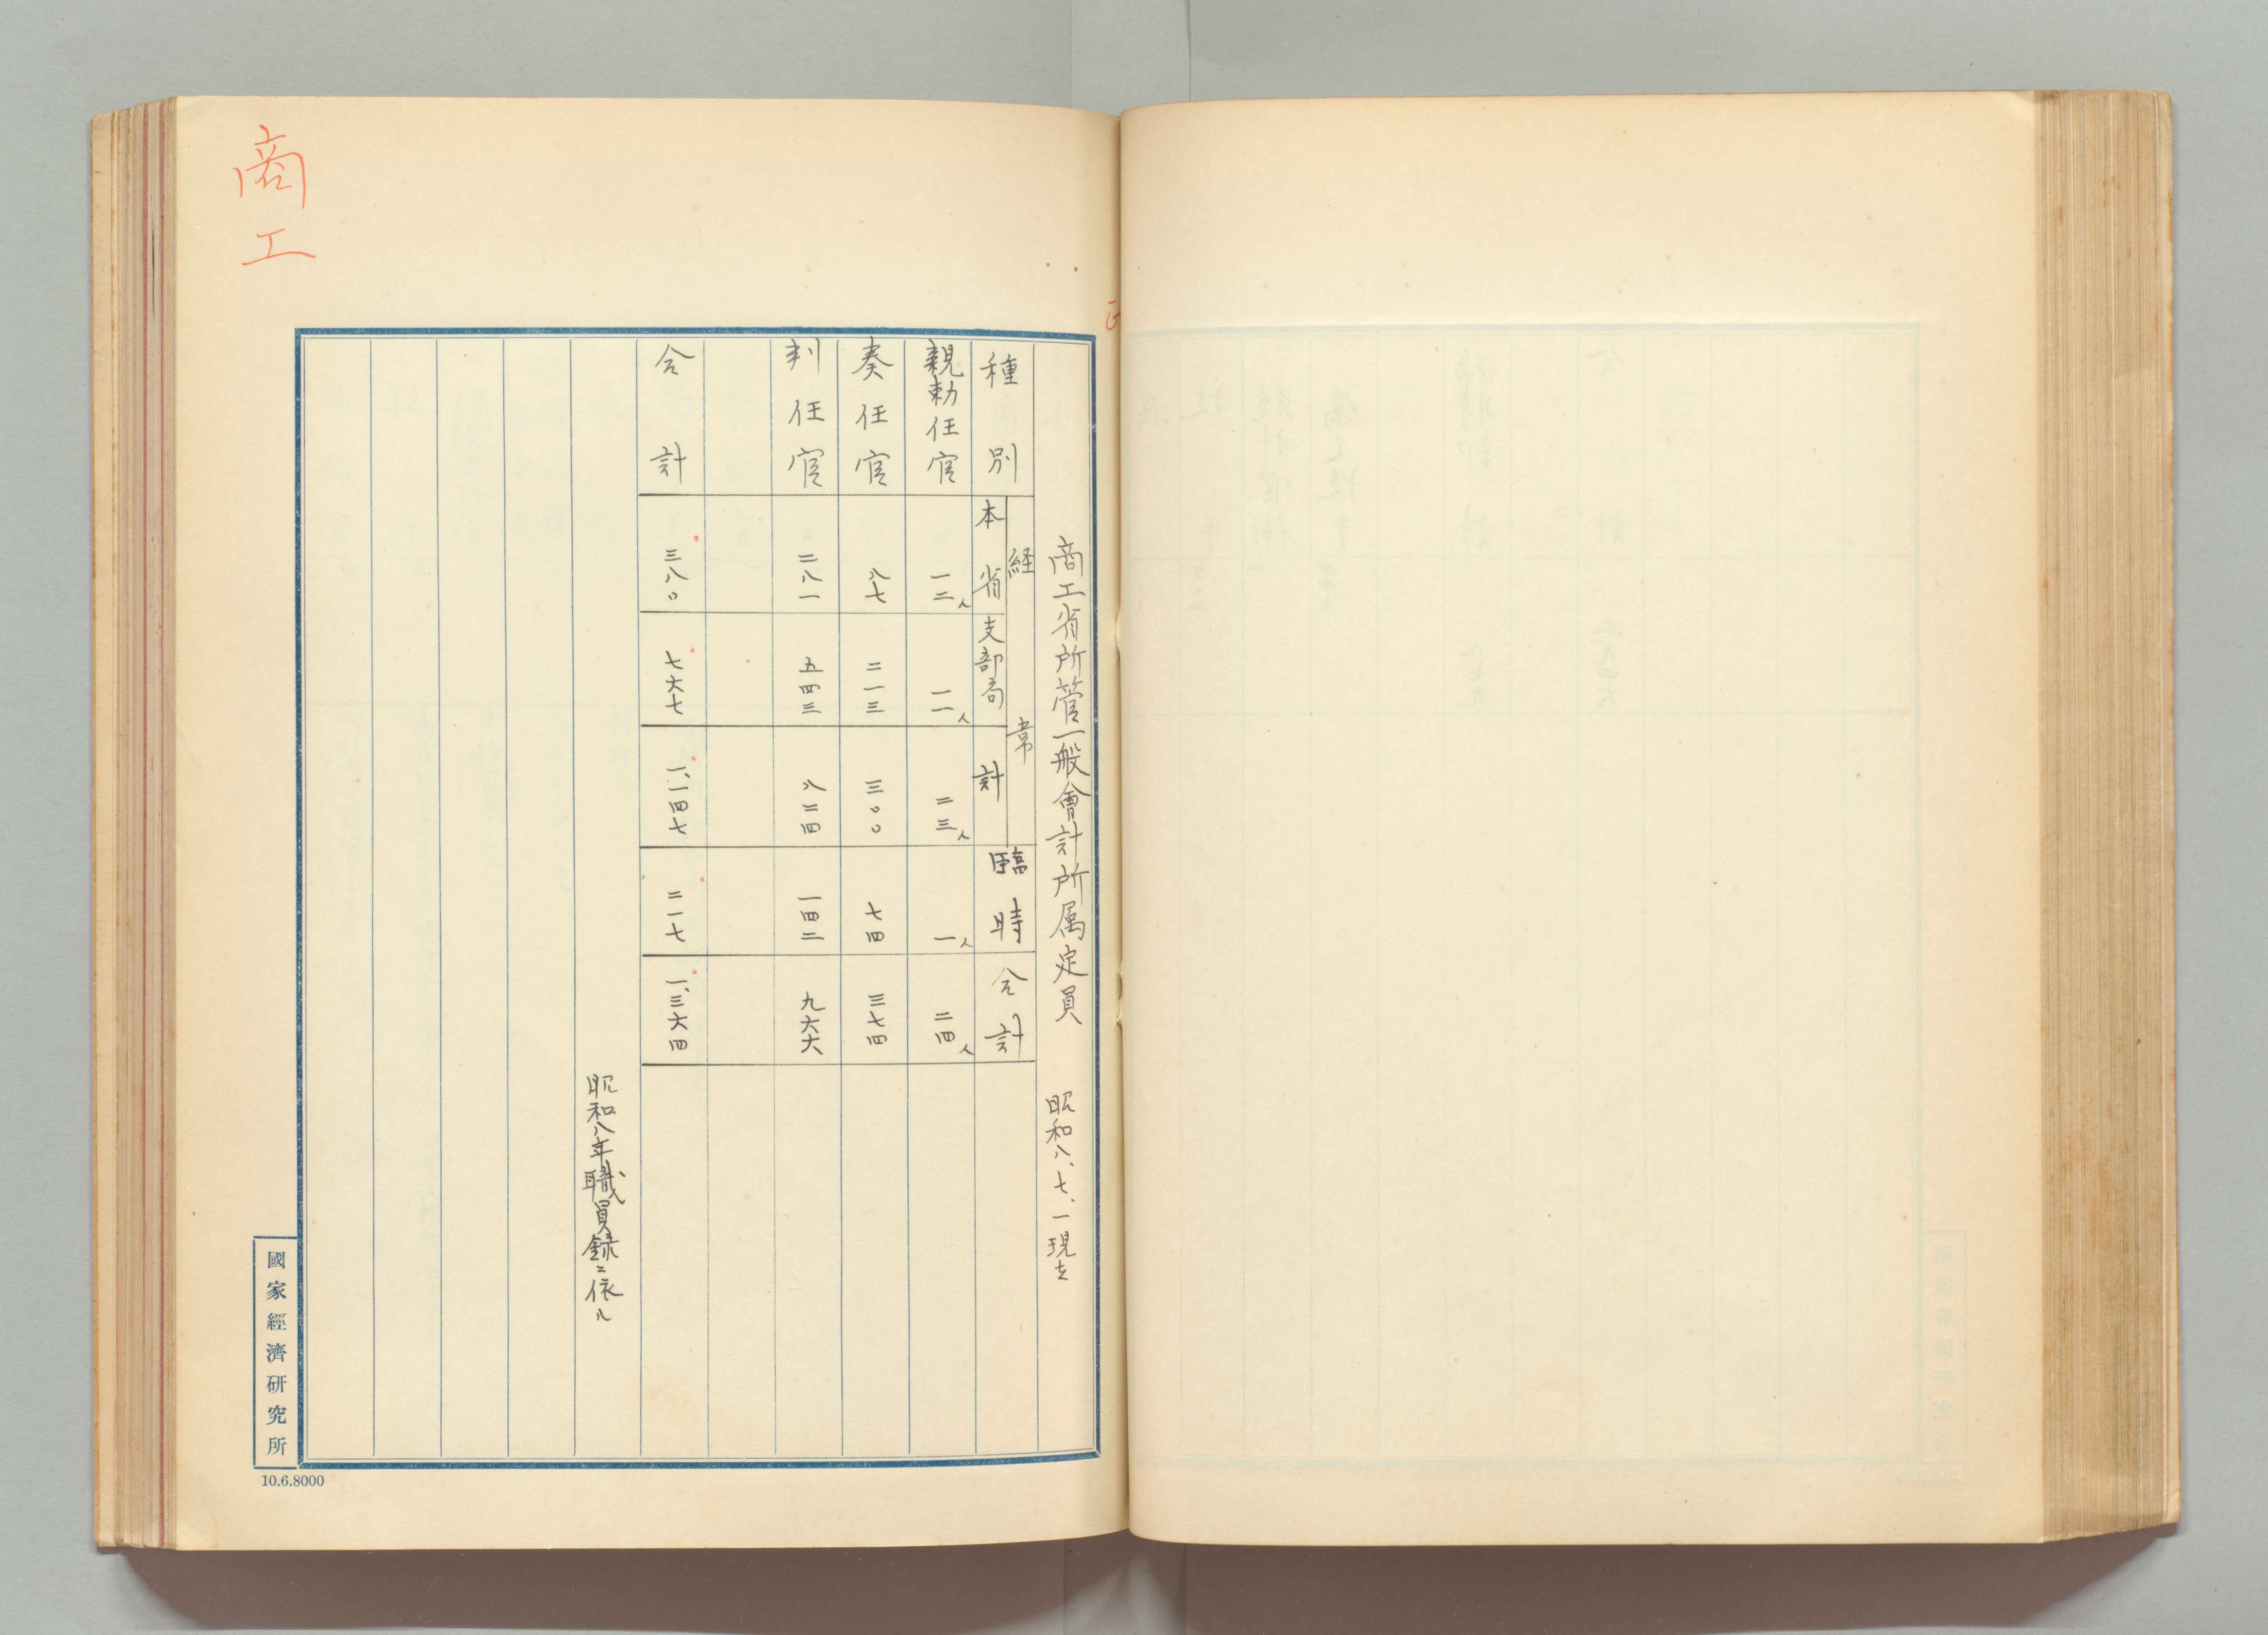 商工
商工省所管一般會計所属定員　昭和八、七、一現在
種別　経常　本省　支部局　計　臨時　合計
親勅任官　一二人　一一人　二三人　一人　二四人
奏任官　八七　二一三　三〇〇　七四　三七四
判任官　二八一　五四三　八二四　一四二　九六六
合計　三八〇　七六七　一、一四七　二一七　一、三六四
昭和八年職員録ニ依ル
國家經濟研究所
10.6.8000